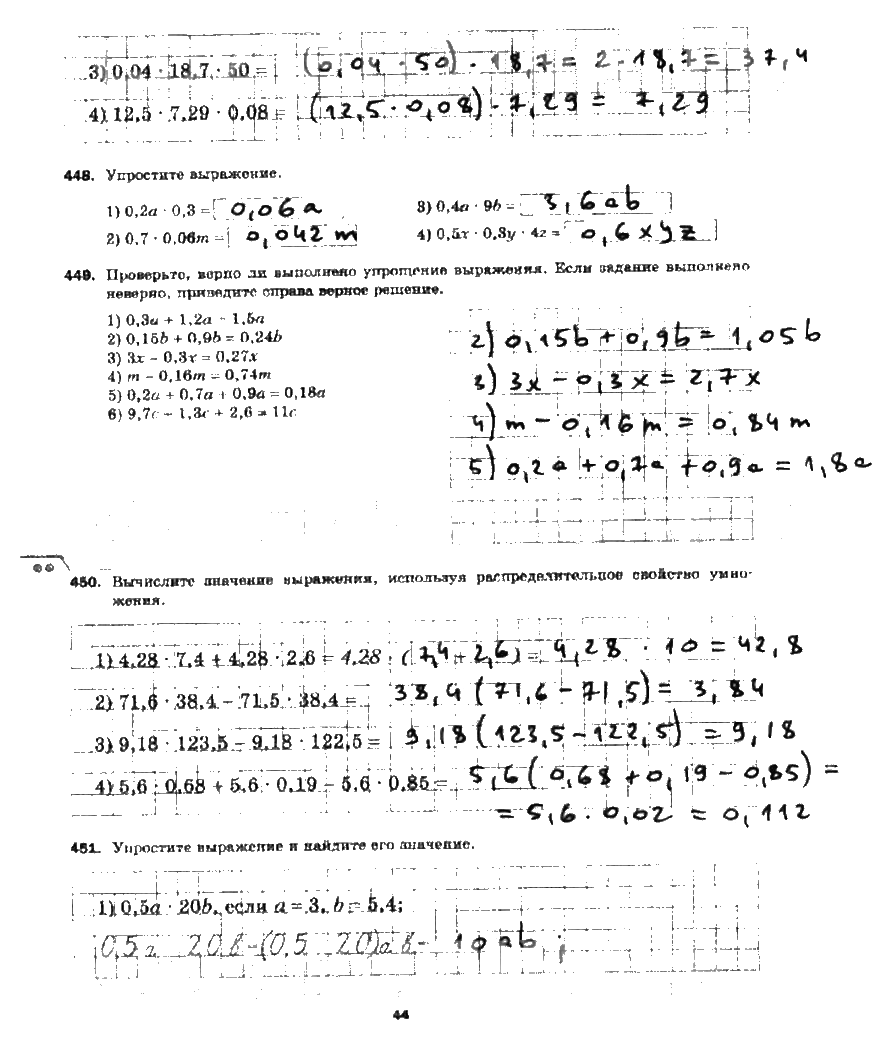 3) 0,04 · 18,7 · 50 = (0,04 · 50) · 18,7 = 2 · 18,7 = 37,4
4) 12,5 · 7,29 · 0,08 = (12,5 · 0,08) · 7,29 = 7,29
448. Упростите выражение.
1) 0,2a · 0,3 = 0,06a 3) 0,4a · 9b = 3,6ab
2) 0,7 · 0,06m = 0,042m 4) 0,5x · 0,3y · 4z = 0,6xyz
449. Проверьте, верно ли выполнено упрощение выражения. Если задание выполнено
неверно, приведите справа верное решение.
1) 0,3a + 1,2a = 1,5a
2) 0,15b + 0,9b = 0,24b
3) 3x − 0,3x = 0,27x
4) m − 0,16m = 0,74m
5) 0,2a + 0,7a + 0,9a = 0,18a
6) 9,7c − 1,3c + 2,6 = 11c
2) 0,15b + 0,9b = 1,05b
3) 3x − 0,3x = 2,7x
4) m − 0,16m = 0,84m
5) 0,2a + 0,7a + 0,9a = 1,8a
450. Вычислите значение выражения, используя распределительное свойство умно-
жения.
1) 4,28 · 7,4 + 4,28 · 2,6 = 4,28 · (7,4 + 2,6) = 4,28 · 10 = 42,8
2) 71,6 · 38,4 − 71,5 · 38,4 = 38,4 (71,6 − 71,5) = 3,84
3) 9,18 · 123,5 − 9,18 · 122,5 = 9,18 (123,5 − 122,5) = 9,18
4) 5,6 · 0,68 + 5,6 · 0,19 − 5,6 · 0,85 = 5,6 (0,68 + 0,19 − 0,85) =
= 5,6 · 0,02 = 0,112
451. Упростите выражение и найдите его значение.
1) 0,5a · 20b, если a = 3, b = 5,4;
0,5a · 20b = (0,5 · 20)ab = 10ab;
44